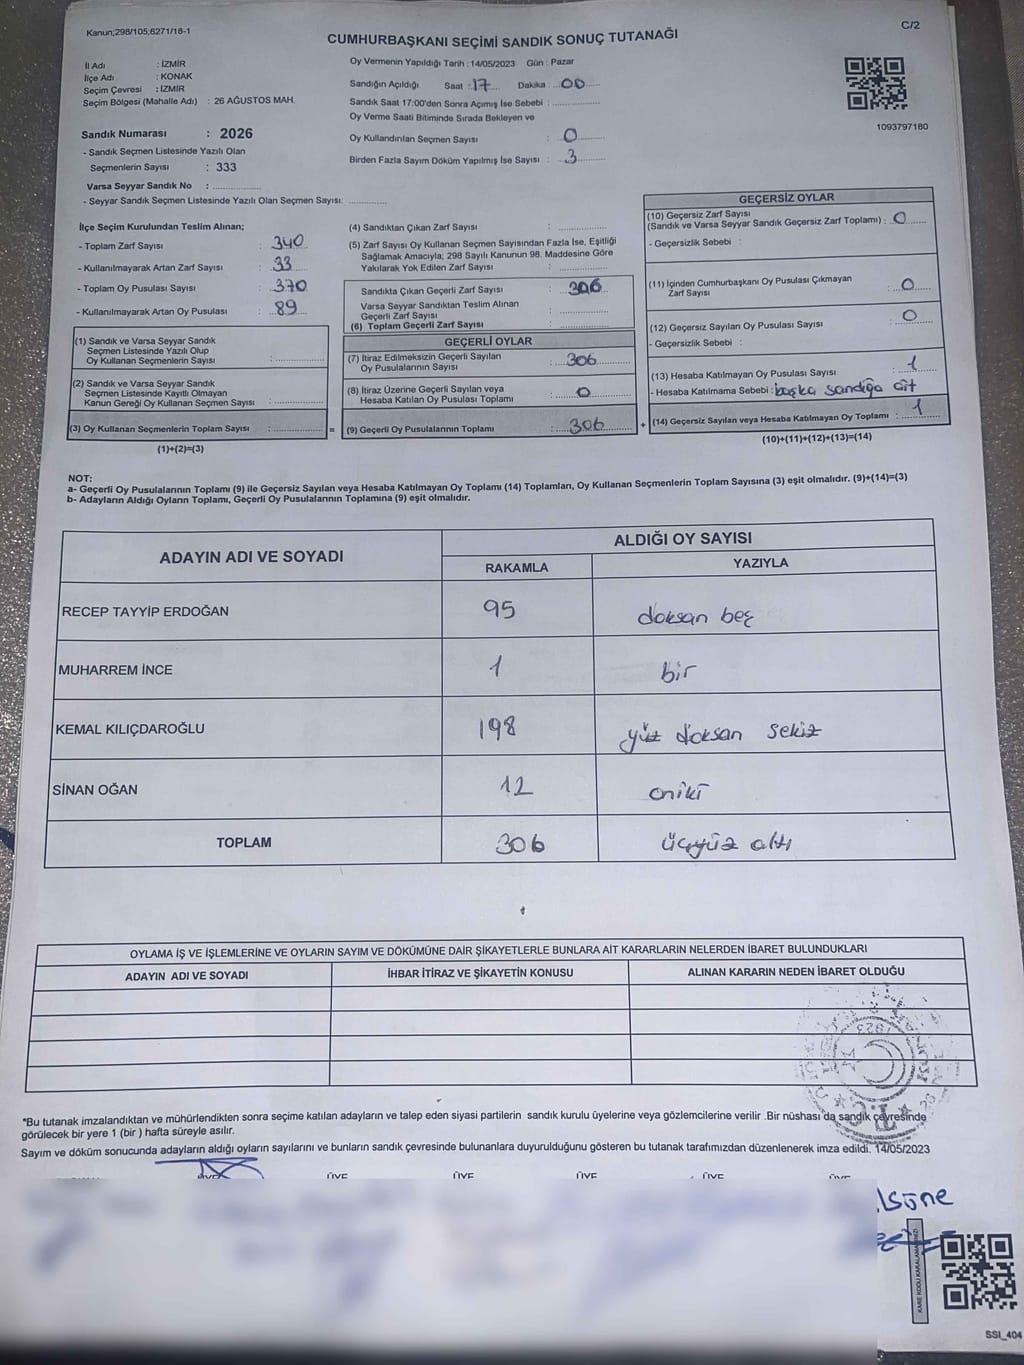 Kanun;298/105;6271/18-1
C/2
CUMHURBAŞKANI SEÇİMİ SANDIK SONUÇ TUTANAĞI
İl Adı : İZMİR
İlçe Adı : KONAK
Seçim Çevresi : İZMİR
Seçim Bölgesi (Mahalle Adı) : 26 AĞUSTOS MAH.
Sandık Numarası : 2026
- Sandık Seçmen Listesinde Yazılı Olan
Seçmenlerin Sayısı : 333
Varsa Seyyar Sandık No : ..................
- Seyyar Sandık Seçmen Listesinde Yazılı Olan Seçmen Sayısı: ..............
Oy Vermenin Yapıldığı Tarih : 14/05/2023 Gün : Pazar
Sandığın Açıldığı Saat : 17 Dakika : 00
Sandık Saat 17:00'den Sonra Açımış İse Sebebi : ..............
Oy Verme Saati Bitiminde Sırada Bekleyen ve
Oy Kullandırılan Seçmen Sayısı : 0
Birden Fazla Sayım Döküm Yapılmış İse Sayısı : 3
1093797180
İlçe Seçim Kurulundan Teslim Alınan;
- Toplam Zarf Sayısı : 340
- Kullanılmayarak Artan Zarf Sayısı : 33
- Toplam Oy Pusulası Sayısı : 370
- Kullanılmayarak Artan Oy Pusulası : 89
(1) Sandık ve Varsa Seyyar Sandık
Seçmen Listesinde Yazılı Olup
Oy Kullanan Seçmenlerin Sayısı : ..............
(2) Sandık ve Varsa Seyyar Sandık
Seçmen Listesinde Kayıtlı Olmayan
Kanun Gereği Oy Kullanan Seçmen Sayısı : ..............
(3) Oy Kullanan Seçmenlerin Toplam Sayısı : .............. =
(1)+(2)=(3)
(4) Sandıktan Çıkan Zarf Sayısı : ..............
(5) Zarf Sayısı Oy Kullanan Seçmen Sayısından Fazla İse, Eşitliği
Sağlamak Amacıyla; 298 Sayılı Kanunun 98. Maddesine Göre
Yakılarak Yok Edilen Zarf Sayısı : ..............
Sandıkta Çıkan Geçerli Zarf Sayısı : 306
Varsa Seyyar Sandıktan Teslim Alınan
Geçerli Zarf Sayısı : ..............
(6) Toplam Geçerli Zarf Sayısı : ..............
GEÇERLİ OYLAR
(7) İtiraz Edilmeksizin Geçerli Sayılan
Oy Pusulasının Sayısı : 306
(8) İtiraz Üzerine Geçerli Sayılan veya
Hesaba Katılan Oy Pusulası Toplamı : 0
(9) Geçerli Oy Pusulalarının Toplamı : 306 +
GEÇERSİZ OYLAR
(10) Geçersiz Zarf Sayısı
(Sandık ve Varsa Seyyar Sandık Geçersiz Zarf Toplamı) : 0
- Geçersizlik Sebebi :
(11) İçinden Cumhurbaşkanı Oy Pusulası Çıkmayan
Zarf Sayısı : 0
(12) Geçersiz Sayılan Oy Pusulası Sayısı : 0
- Geçersizlik Sebebi :
(13) Hesaba Katılmayan Oy Pusulası Sayısı : 1
- Hesaba Katılmama Sebebi : başka sandığa ait
(14) Geçersiz Sayılan veya Hesaba Katılmayan Oy Toplamı : 1
(10)+(11)+(12)+(13)=(14)
NOT:
a- Geçerli Oy Pusulalarının Toplamı (9) ile Geçersiz Sayılan veya Hesaba Katılmayan Oy Toplamı (14) Toplamları, Oy Kullanan Seçmenlerin Toplam Sayısına (3) eşit olmalıdır. (9)+(14)=(3)
b- Adayların Aldığı Oyların Toplamı, Geçerli Oy Pusulalarının Toplamına (9) eşit olmalıdır.
ADAYIN ADI VE SOYADI ALDIĞI OY SAYISI
RAKAMLA YAZIYLA
RECEP TAYYİP ERDOĞAN 95 doksan beş
MUHARREM İNCE 1 bir
KEMAL KILIÇDAROĞLU 198 yüz doksan sekiz
SİNAN OĞAN 12 oniki
TOPLAM 306 üçyüz altı
OYLAMA İŞ VE İŞLEMLERİNE VE OYLARIN SAYIM VE DÖKÜMÜNE DAİR ŞİKAYETLERLE BUNLARA AİT KARARLARIN NELERDEN İBARET BULUNDUKLARI
ADAYIN ADI VE SOYADI İHBAR İTİRAZ VE ŞİKAYETİN KONUSU ALINAN KARARIN NEDEN İBARET OLDUĞU
1923
T.C.
*Bu tutanak imzalandıktan ve mühürlendikten sonra seçime katılan adayların ve talep eden siyasi partilerin sandık kurulu üyelerine veya gözlemcilerine verilir .Bir nüshası da sandık çevresinde
görülecek bir yere 1 (bir ) hafta süreyle asılır.
Sayım ve döküm sonucunda adayların aldığı oyların sayılarını ve bunların sandık çevresinde bulunanlara duyurulduğunu gösteren bu tutanak tarafımızdan düzenlenerek imza edildi. 14/05/2023
ÜYE ÜYE ÜYE ÜYE
SSI_404